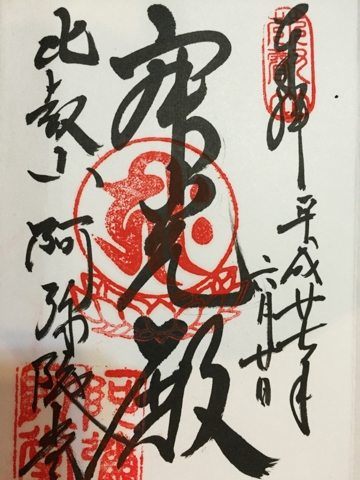 奉拝 平成廿七年
六月廿日
寂光殿
比叡山 阿弥陀堂